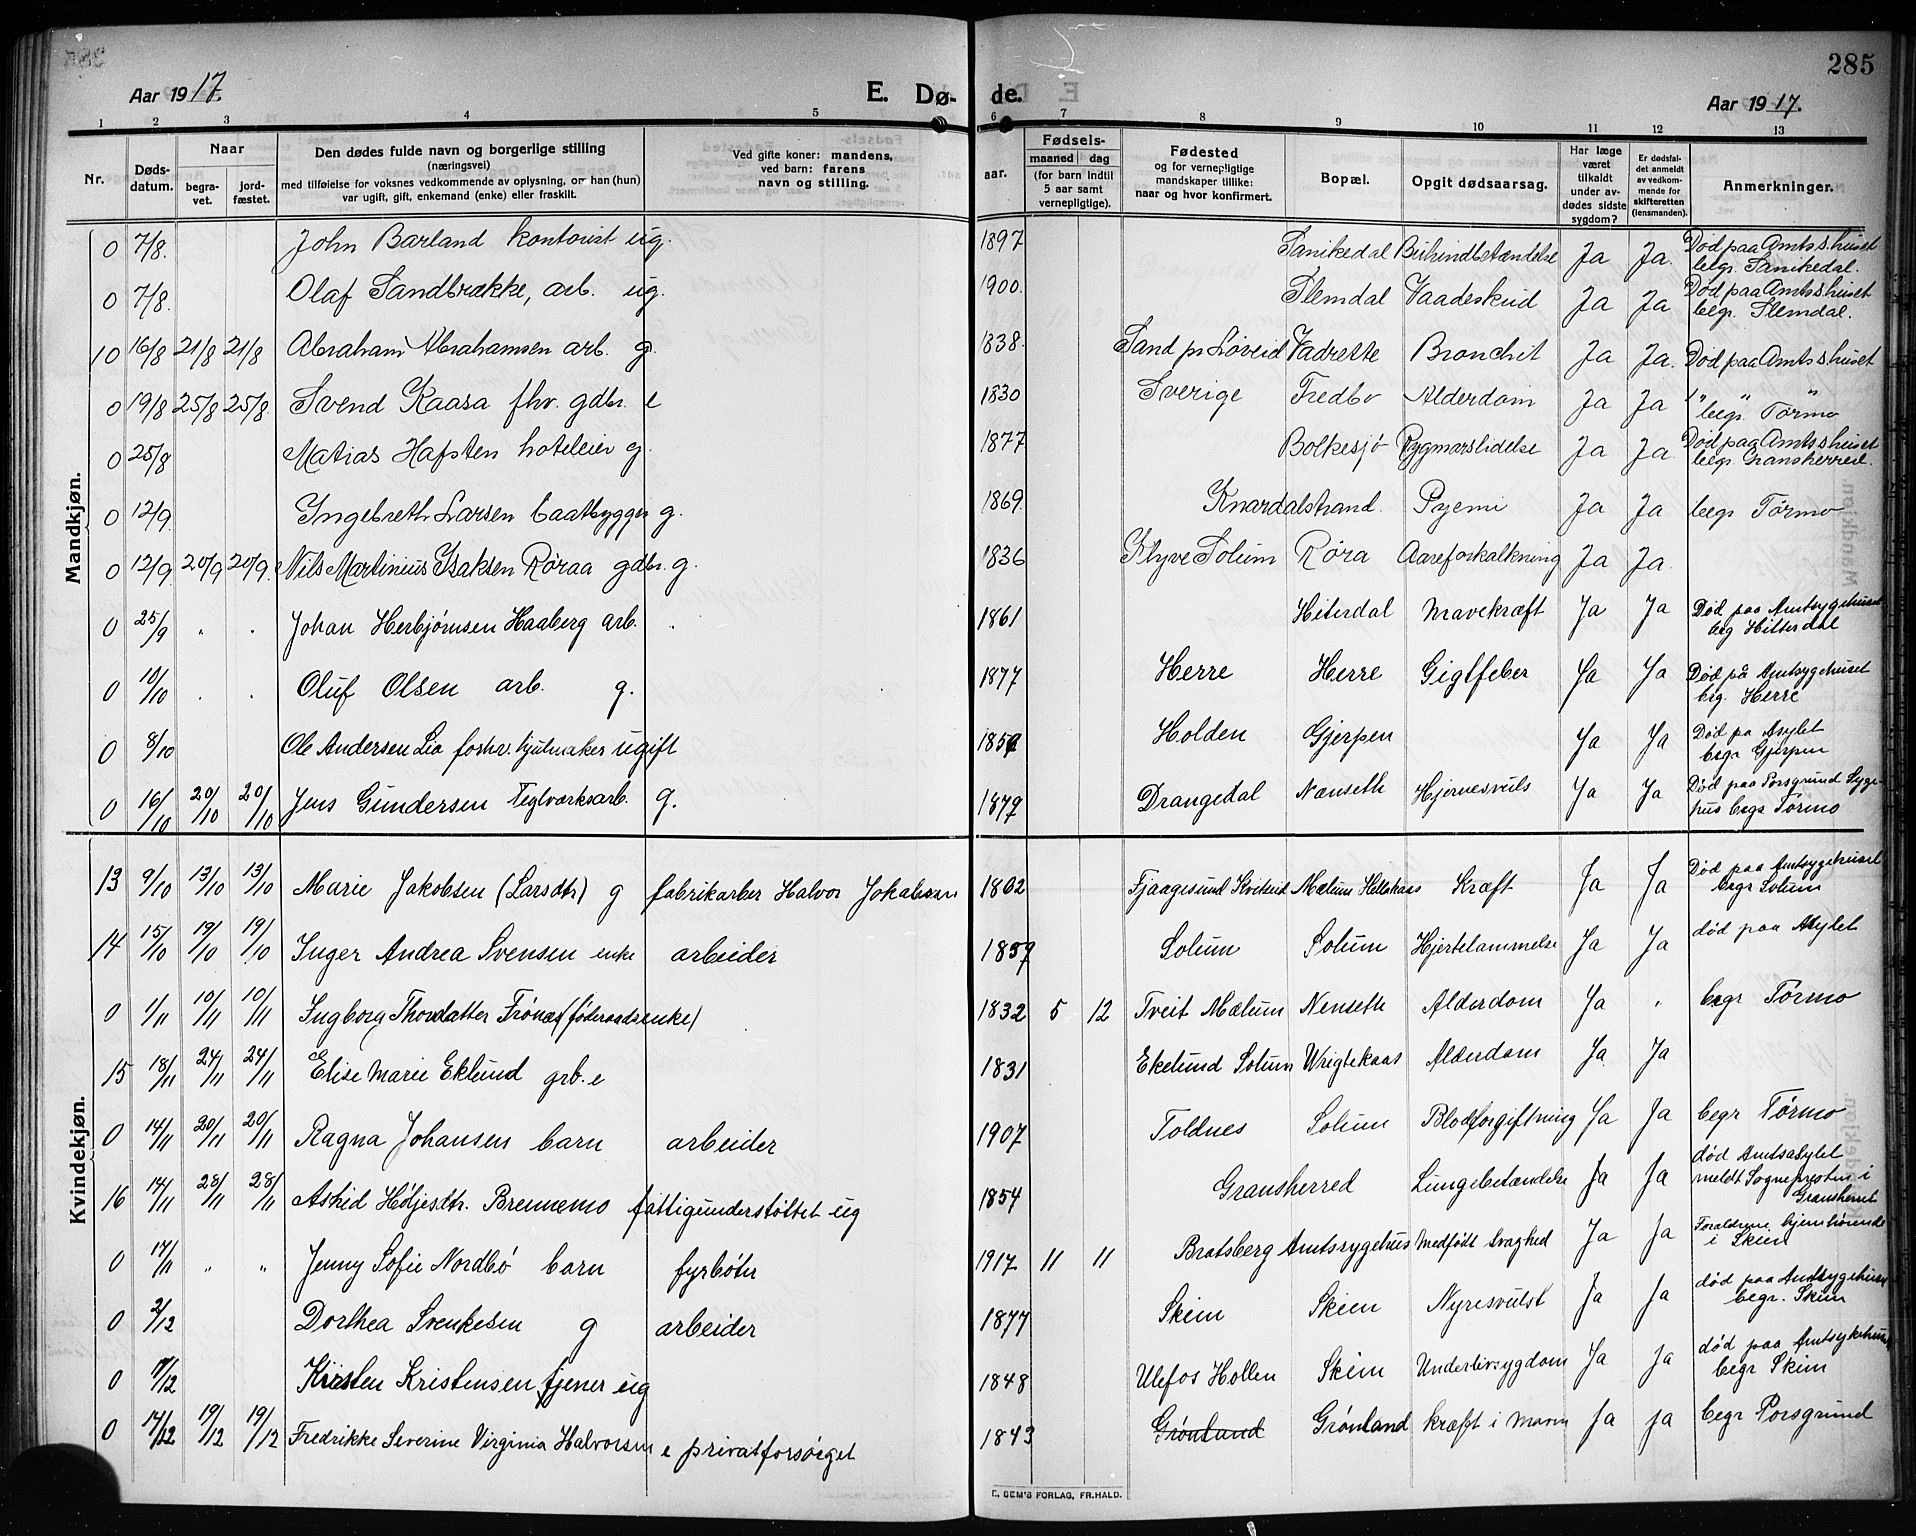 285
Aar 1917.
E. Dø-
de.
Aar 1917.
1 2 3 4 5 6 7 8 9 10 11 12 13
Nr.
Dødsdatum.
Naar
begravet.
jordfæstet.
Den dødes fulde navn og borgerlige stilling
(næringsvei)
med tilføielse for voksnes vedkommende av oplysning, om han (hun)
var ugift, gift, enkemand (enke) eller fraskilt.
Ved gifte koner: mandens,
ved barn: farens
navn og stilling.
aar.
Fødsels-
maaned dag
(for barn indtil
5 aar samt
vernepligtige).
Fødested
og for vernepligtige
mandskaper tillike:
naar og hvor konfirmert.
Bopæl.
Opgit dødsaarsag.
Har læge
været
tilkaldt
under av-
dødes sidste
sygdom?
Er dødsfal-
det anmeldt
av vedkom-
mende for
skifteretten
(lensmanden).
Anmerkninger.
Mandkjøn.
0 7/8. John Barland kontorist ug. 1897 Sanikedal Ja Ja. Død paa Amtssh.huset
begr. Sanikedal.
0 7/8. Olaf Sandbrække, arb. ug. 1900. Slemdal Vaadeskud Ja Ja Død paa Amtssh.huset
begr. Slemdal.
10 16/8 21/8 21/8 Abraham Abrahamsen arb. g. 1838. Sand pr Løveid Vadrette Bronchit Ja Ja. Død paa Amtssh.huset
0 19/8 25/8 25/8. Svend Kaasa fhv. gdbr. e 1830 Sverige Fredbo Alderdom Ja Ja " " "
begr. Tormo
0 25/8 Matias Hafsten hoteleier g. 1877 Bolkesjø Rygmarslidelse Ja Ja. Død paa Amtssh.huset
begr. Gransherred.
0 12/9. Ingebreth Larsen baatbygger g. 1869. Knardalstrand. Pyemi Ja Ja begr Tørmo
0 12/9 20/9 20/9. Nils Martinius Isaksen Røraa gdbr. g. 1836 Klyve Solum Røra Aareforkalkning Ja Ja.
0 25/9 " . Johan Herbjørnsen Haaberg arb. . 1861 Hiterdal Mavekræft Ja Ja Død paa Amtsygehuset
beg Hitterdal
0 10/10 . . Oluf Olsen arb. g. 1877 Herre Herre Gigtfeber Ja Ja Død på Amtsygehuset
beg. Herre
0 8/10 Ole Andersen Lia forhv. hjulmaker ugift Holden Gjerpen Ja Ja Død pa Asylet
begr Gjerpen
0 16/10 20/10 20/10 Jens Gundersen Teglverksarb. g. 1879 Drangedal Nænseth Hjernesvuls Ja Ja Død paa Porsgrund Syge-
hus begr Tørmo
Kvindekjøn.
13 9/10 13/10 13/10 Marie Jakobsen (Larsdtr) g fabrikarber Halvor Jokabsen 1862 Mælum Ja Ja Kræft Død paa Amtsygehuset
begr Solum
14 15/10 19/10 19/10 Inger Andrea Svensen enke arbeider 1859 Solum Solum Hjertelammelse Ja Ja død paa Asylet
0 1/11 10/11 10/11 Ingborg Thordatter Frønes (føderaadsenke) 1832 5 12 Tveit Mælum Nenseth Alderdom Ja " begr Tørmo
15 18/11 24/11 24/11 Elise Marie Eklund grb. e 1831 Ekelund Solum Wrigtekaas Alderdom Ja Ja
0 14/11 20/11 20/11 Ragna Johansen barn arbeider 1907 Toldnes Solum Blodforgiftning Ja Ja begr Tørmo
16 14/11 28/11 28/11 Askid Høljesdtr. Brennemo fattigunderstøttet ug 1854 Gransherred Lungebetændelse Ja Ja død Amtsasylet
meldt Sogneprsten i
Gransherret
0 17/11 " " Jenny Sofie Nordbø barn fyrbøter 1917 11 11 Bratsberg Amtssygehus Medfødt svaghed Ja Ja Foraldrene hjemhørende
i Skien
0 2/12 Dorthea Svenkesen g arbeider 1877 Skien Skien Nyresvulst Ja Ja død paa Amtsygehuset
begr. Skien
0 11/12 Kirsten Kristensen tjener ug 1848 Ulefos Hollen Skien Underlivsygdom Ja Ja død paa Amtsykehuset
begr Skien
0 17/12 19/12 19/12 Fredrikke Severine Virginia Halvorsen e privatforsørget 1843 Grønland Grønland kræft i maven Ja Ja begr Porsgrund
E. SEM'S FORLAG, FR.HALD.